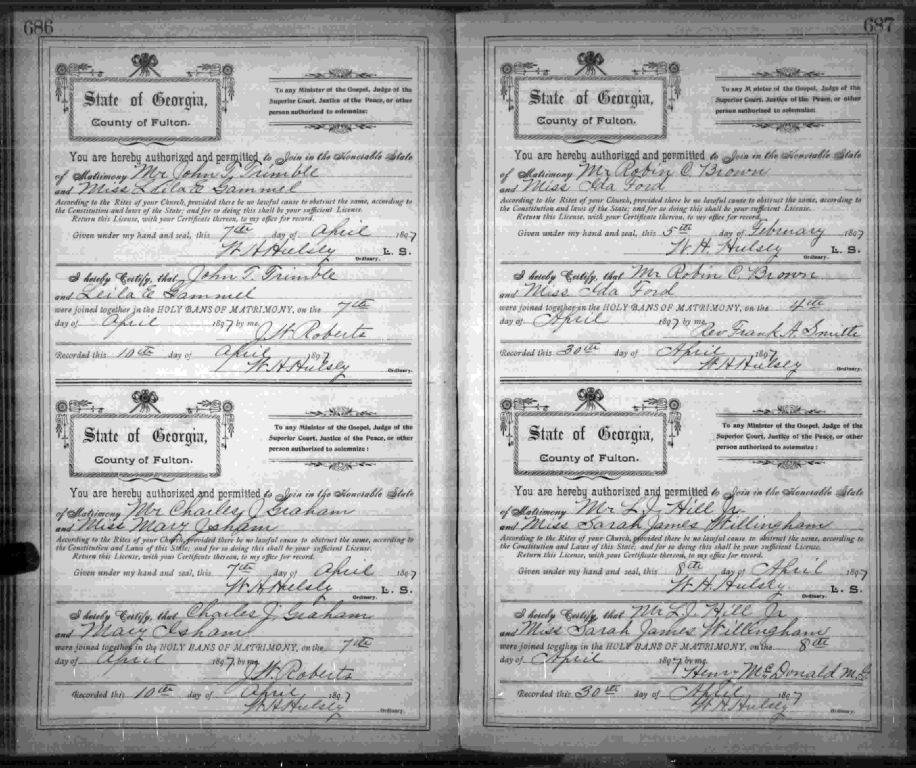 686
State of Georgia,
County of Fulton.
To any Minister of the Gospel, Judge of the
Superior Court, Justice of the Peace, or other
person authorized to solemnize:
You are hereby authorized and permitted to Join in the Honorable State
of Matrimony Mr John T. Trimble
and Miss Leila E Gammel
According to the Rites of your Church, provided there be no lawful cause to obstruct the same, according to
the Constitution and laws of the State; and for so doing this shall be your sufficient License.
Return this License, with your Certificate thereon, to my office for record.
Given under my hand and seal, this 7th day of April 1897
W. H. Hulsey L. S.
Ordinary.
I hereby Certify, that John T. Trimble
and Leila E Gammel
were joined together in the HOLY BANS OF MATRIMONY, on the 7th
day of April 1897 by me,
J. W. Roberts
Recorded this 10th day of April 1897
W H Hulsey Ordinary.
State of Georgia,
County of Fulton.
To any Minister of the Gospel, Judge of the
Superior Court, Justice of the Peace, or other
person authorized to solemnize:
You are hereby authorized and permitted to Join in the Honorable State
of Matrimony Mr Charles J Graham
and Miss Mary Isham
According to the Rites of your Church, provided there be no lawful cause to obstruct the same, according to
the Constitution and Laws of this State; and for so doing this shall be your sufficient License.
Return this License, with your Certificate thereon, to my office for record.
Given under my hand and seal, this 7th day of April 1897
W H Hulsey L. S.
Ordinary.
I hereby Certify, that Charles J. Graham
and Mary Isham
were joined together in the HOLY BANS OF MATRIMONY, on the 7th
day of April 1897, by me,
J. W. Roberts
Recorded this 10th day of April 1897
W H Hulsey
Ordinary.
687
State of Georgia,
County of Fulton.
To any M nister of the Gospel, Judge of the
Superior Court, Justice of the Peace, or other
person authorized to solemnize:
You are hereby authorized and permitted to Join in the Honorable State
of Matrimony Mr Robin C. Brown
and Miss Ida Ford
According to the Rites of your Church, provided there be no lawful cause to obstruct the same, according to
the Constitution and laws of the State; and for so doing this shall be your sufficient License.
Return this License, with your Certificate thereon, to my office for record.
Given under my hand and seal, this 5th day of February 1897
W. H. Hulsey L. S.
Ordinary.
I hereby Certify, that Mr Robin C. Brown
and Miss Ida Ford
were joined together in the HOLY BANS OF MATRIMONY, on the 4th
day of April 1897 by me,
Rev Frank A. Smith
Recorded this 30th day of April 1897
W H Hulsey Ordinary.
State of Georgia,
County of Fulton.
To any Minister of the Gospel, Judge of the
Superior Court, Justice of the Peace, or other
person authorized to solemnize:
You are hereby authorized and permitted to Join in the Honorable State
of Matrimony Mr L. J. Hill Jr.
and Miss Sarah James Willingham
According to the Rites of your Church, provided there be no lawful cause to obstruct the same, according to
the Constitution and Laws of this State; and for so doing this shall be your sufficient License.
Return this License, with your Certificate thereon, to my office for record.
Given under my hand and seal, this 8th day of April 1897
W. H. Hulsey L. S.
Ordinary.
I hereby Certify, that Mr L. J. Hill Jr
and Miss Sarah James Willingham
were joined together in the HOLY BANS OF MATRIMONY, on the 8th
day of April 1897 by me,
Henry McDonald M.G.
Recorded this 30th day of April 1897
W. H. Hulsey
Ordinary.